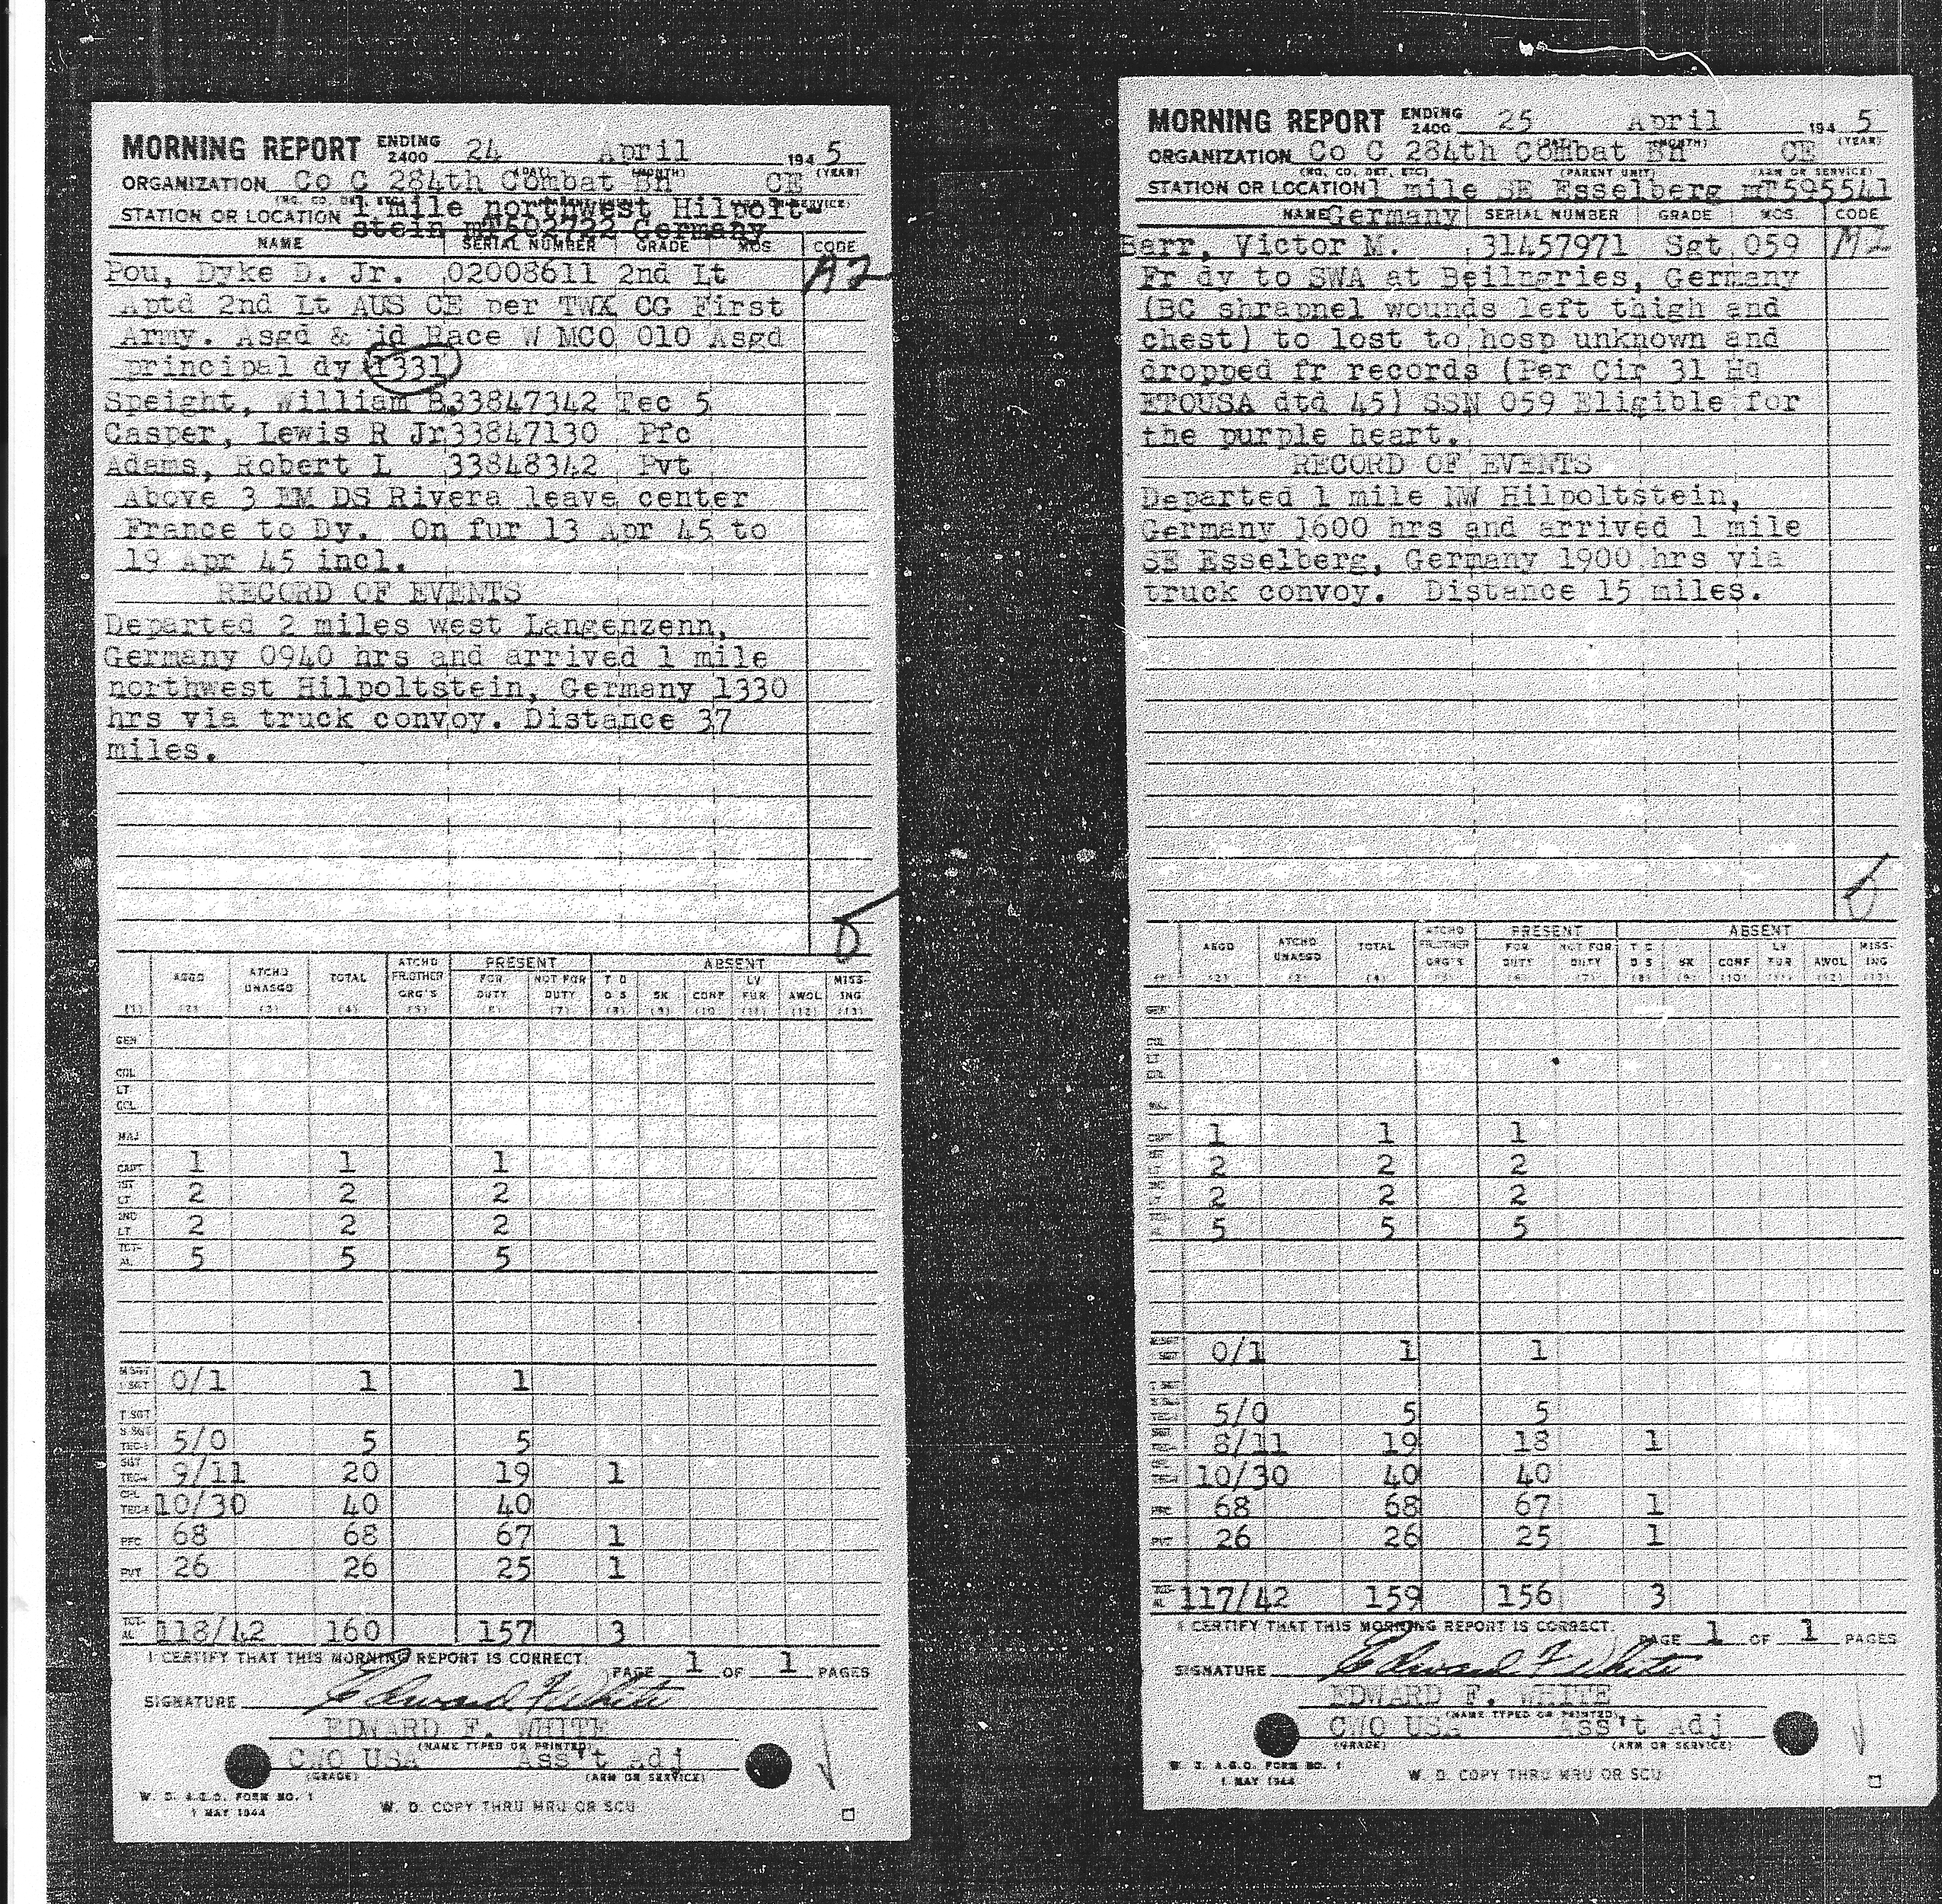 MORNING REPORT ENDING 2400 24 April 194 5
(DAY) (MONTH) (YEAR)
ORGANIZATION Co C 284th Combat Bn CE
STATION OR LOCATION 1 mile northwest Hilpolt-
stein mT602722 Germany
NAME SERIAL NUMBER GRADE MOS. CODE
Pou, Dyke D. Jr. 02008611 2nd Lt A2
Aptd 2nd Lt AUS CE per TWX CG First
Army. Asgd & jd Race W MCO 010 Asgd
principal dy 1331
Speight, William B. 33847342 Tec 5
Casper, Lewis R Jr 33847130 Pfc
Adams, Robert L 33848342 Pvt
Above 3 EM DS Rivera leave center
France to Dy. On fur 13 Apr 45 to
19 Apr 45 incl.
RECORD OF EVENTS
Departed 2 miles west Langenzenn,
Germany 0940 hrs and arrived 1 mile
northwest Hilpoltstein, Germany 1330
hrs via truck convoy. Distance 37
miles.
ASGD ATCHD UNASGD TOTAL ATCHD FR.OTHER ORG'S PRESENT FOR DUTY NOT FOR DUTY ABSENT T D D S SK CONF LV FUR AWOL MISS-ING
(1) (2) (3) (4) (5) (6) (7) (8) (9) (10) (11) (12) (13)
GEN
COL
LT COL
MAJ
CAPT 1 1 1
1ST LT 2 2 2
2ND LT 2 2 2
TOT-AL 5 5 5
M SGT 1 SGT 0/1 1 1
T SGT
S SGT TEC-3 5/0 5 5
SGT TEC-4 9/11 20 19 1
CPL TEC-5 10/30 40 40
PFC 68 68 67 1
PVT 26 26 25 1
TOT-AL 118/42 160 157 3
I CERTIFY THAT THIS MORNING REPORT IS CORRECT. PAGE 1 OF 1 PAGES
SIGNATURE Edward F White
EDWARD F. WHITE
(NAME TYPED OR PRINTED)
CWO USA Ass't Adj
(GRADE) (ARM OR SERVICE)
W. D. A.G.O. FORM NO. 1
1 MAY 1944
W. D. COPY THRU MRU OR SCU
MORNING REPORT ENDING 2400 25 April 194 5
(MONTH) (YEAR)
ORGANIZATION Co C 284th Combat Bn CE
(HQ. CO. DET. ETC) (PARENT UNIT) (ARM OR SERVICE)
STATION OR LOCATION 1 mile SE Esselberg mT595541
NAME Germany SERIAL NUMBER GRADE MOS. CODE
Barr, Victor M. 31457971 Sgt 059
Fr dy to SWA at Beilngries, Germany
(BC shrapnel wounds left thigh and
chest) to lost to hosp unknown and
dropped fr records (Per Cir 31 Hq
ETOUSA dtd 45) SSN 059 Eligible for
the purple heart.
RECORD OF EVENTS
Departed 1 mile NW Hilpoltstein,
Germany 1600 hrs and arrived 1 mile
SE Esselberg, Germany 1900 hrs via
truck convoy. Distance 15 miles.
ASGD ATCHD UNASGD TOTAL ATCHD FR.OTHER ORG'S PRESENT FOR DUTY NOT FOR DUTY ABSENT T D D S SK CONF LV FUR AWOL MISS-ING
(2) (3) (4) (5) (6) (7) (8) (9) (10) (11) (12) (13)
1 1 1
2 2 2
2 2 2
5 5 5
0/1 1 1
5/0 5 5
8/11 19 18 1
10/30 40 40
68 68 67 1
PVT 26 26 25 1
117/42 159 156 3
I CERTIFY THAT THIS MORNING REPORT IS CORRECT. PAGE 1 OF 1 PAGES
SIGNATURE Edward F White
EDWARD F. WHITE
(NAME TYPED OR PRINTED)
CWO USA Ass't Adj
(GRADE) (ARM OR SERVICE)
W. D. A.G.O. FORM NO. 1
1 MAY 1944
W. D. COPY THRU MRU OR SCU